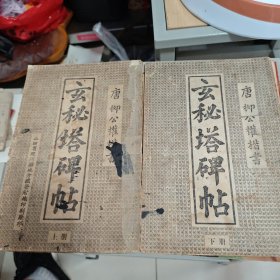 唐柳公權楷書
玄秘塔碑帖
上册
唐柳公權楷書
玄秘塔碑帖
下册